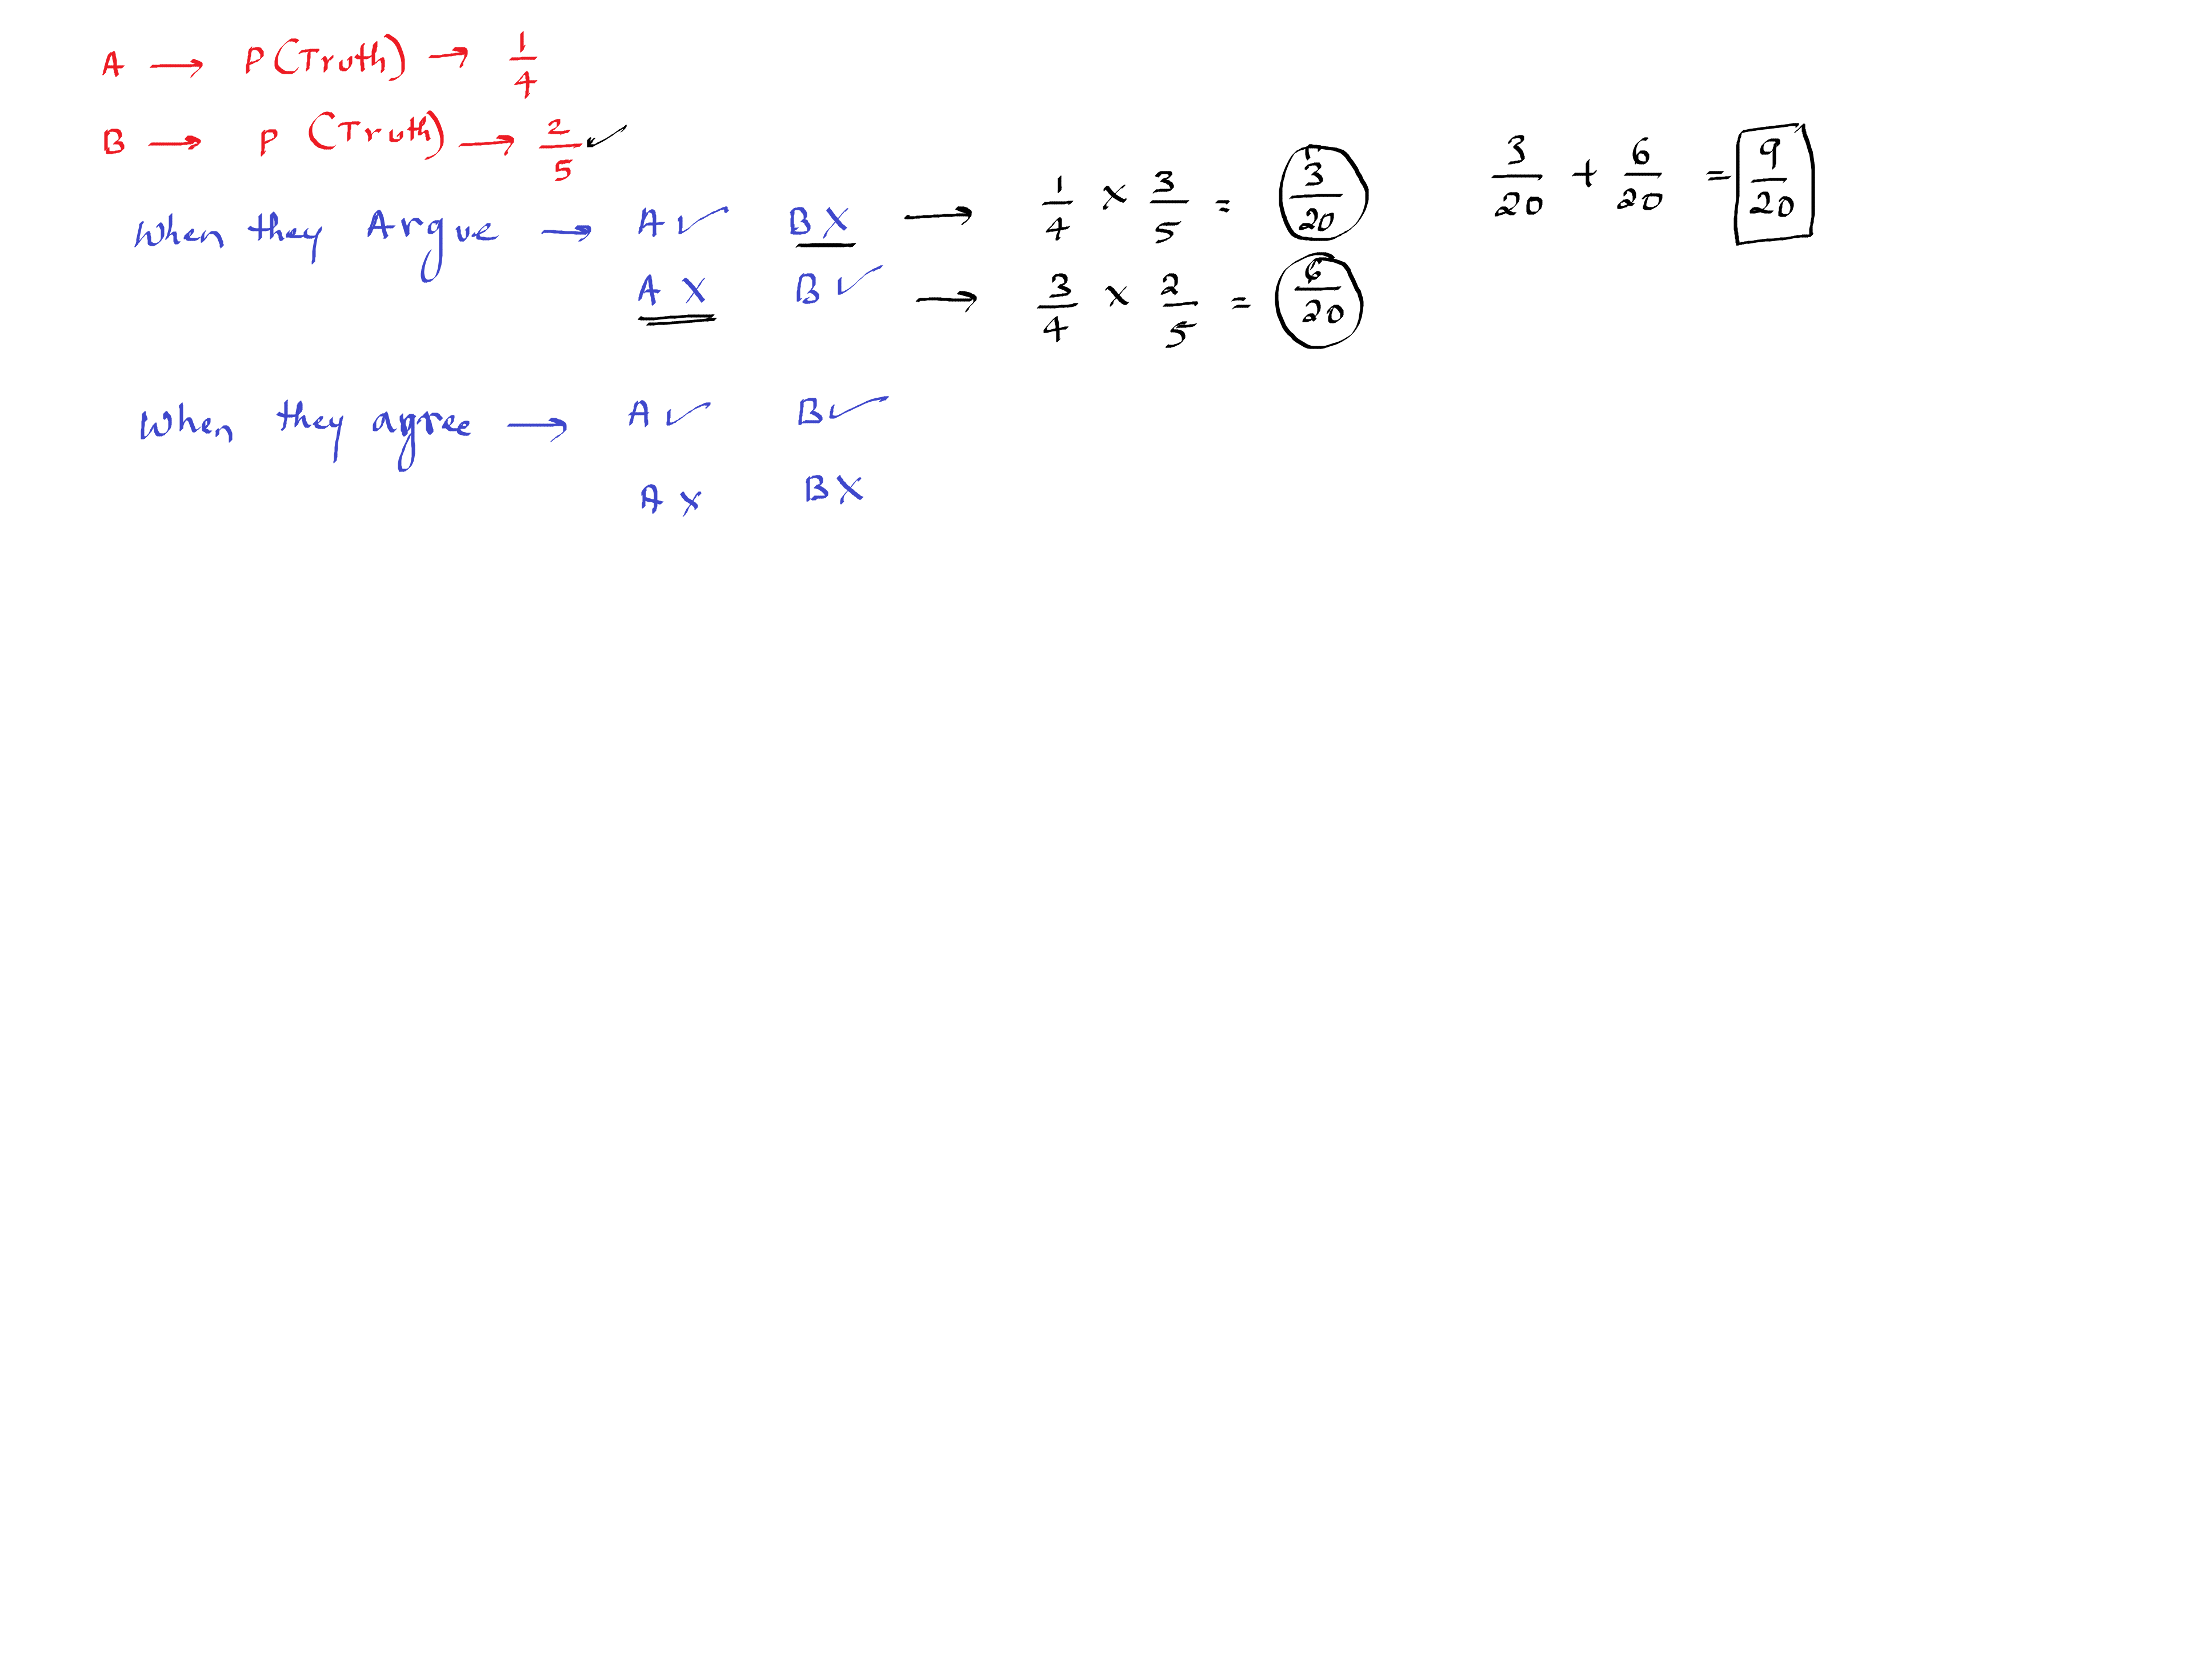 A → P (Truth) → 1/4
B → P (Truth) → 2/5 ✓
When they Argue → A ✓ B X → 1/4 × 3/5 = 3/20
3/20 + 6/20 = 9/20
A X B ✓ → 3/4 × 2/5 = 6/20
When they agree → A ✓ B ✓
A X B X